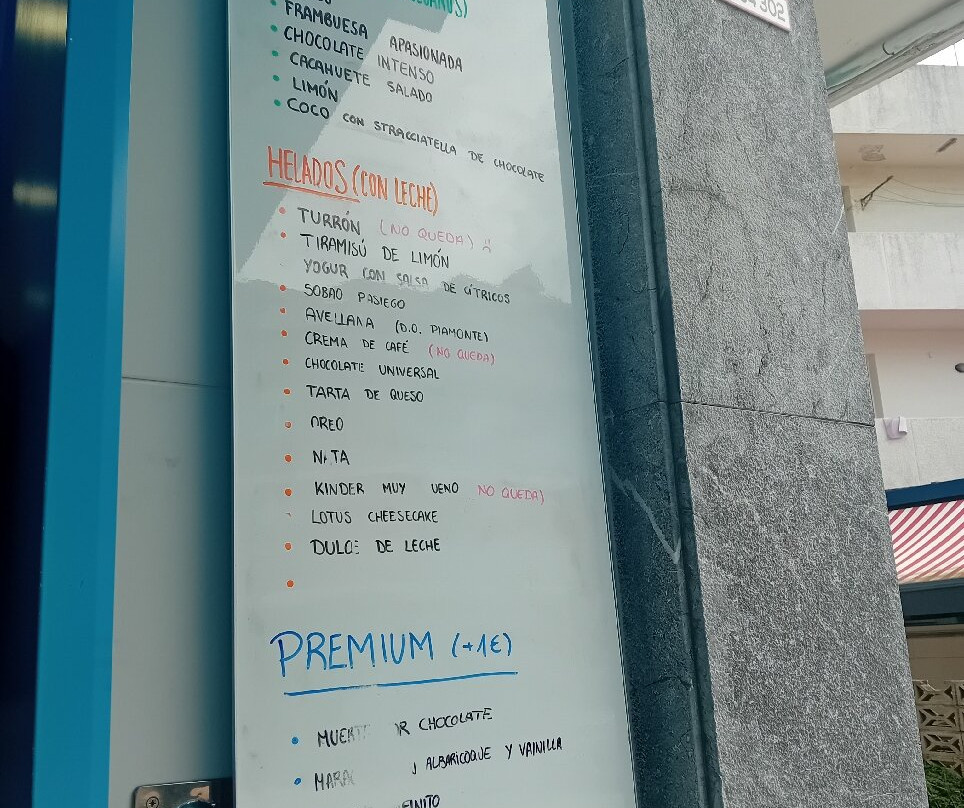 FRAMBUESA APASIONADA
CHOCOLATE INTENSO
CACAHUETE SALADO
LIMÓN
COCO CON STRACCIATELLA DE CHOCOLATE
HELADOS (CON LECHE)
TURRÓN (NO QUEDA) :(
TIRAMISÚ DE LIMÓN
YOGUR CON SALSA DE CÍTRICOS
SOBAO PASIEGO
AVELLANA (D.O. PIAMONTE)
CREMA DE CAFÉ (NO QUEDA)
CHOCOLATE UNIVERSAL
TARTA DE QUESO
OREO
NATA
KINDER MUY UENO NO QUEDA)
LOTUS CHEESECAKE
DULCE DE LECHE
PREMIUM (+1€)
MUERTE R CHOCOLATE
ALBARICOQUE Y VAINILLA
302